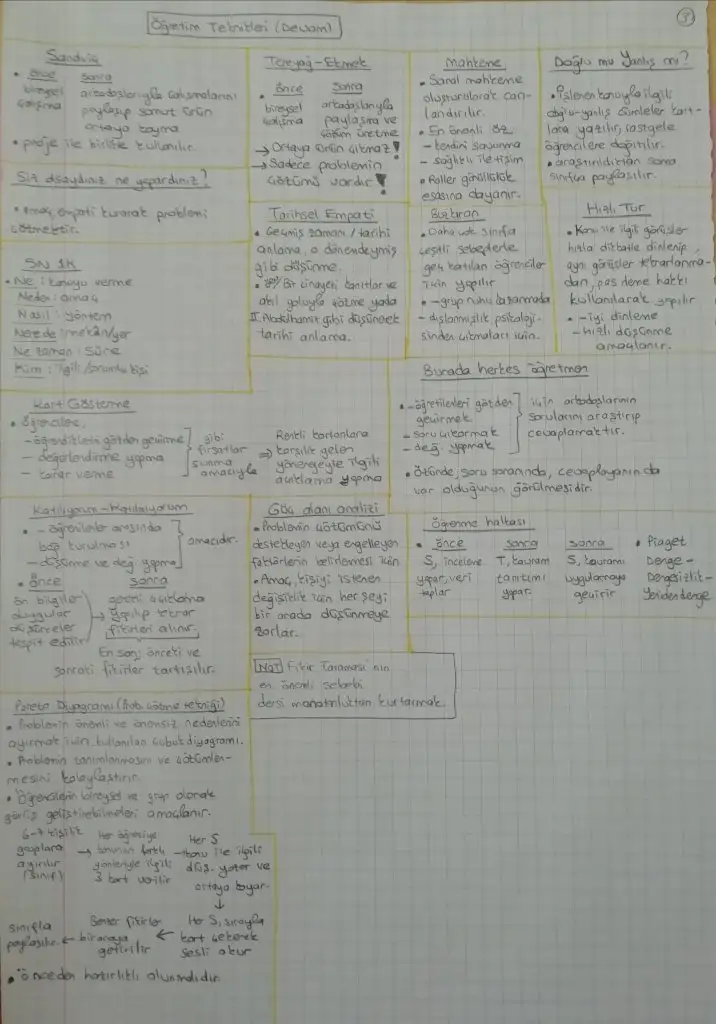 3
Öğretim Teknikleri (Devam)
Sandviç
• önce sonra
bireysel arkadaşlarıyla çalışmalarını
çalışma paylaşıp somut ürün
ortaya koyma
• proje ile birlikte kullanılır.
Siz olsaydınız ne yapardınız?
• Amaç empati kurarak problemi
çözmektir.
5N 1K
• Ne : konuyu verme
Neden : amaç
Nasıl : yöntem
Nerede : mekân/yer
Ne zaman : Süre
Kim : ilgili/sorumlu kişi
Tereyağ-Ekmek
• önce sonra
bireysel arkadaşlarıyla
çalışma paylaşma ve
çözüm üretme
→ Ortaya ürün çıkmaz!
→ Sadece problemin
çözümü vardır!
Tarihsel Empati
• Geçmiş zamanı / tarihi
anlama, o dönemdeymiş
gibi düşünme.
• Bir cinayeti kanıtlar ve
akıl yoluyla çözme yada
II. Abdülhamit gibi düşünerek
tarihi anlama.
Mahkeme
• Sanal mahkeme
oluşturularak can-
landırılır.
• En önemli öz.
- kendini savunma
- sağlıklı iletişim
• Roller gönüllülük
esasına dayanır.
Buzkıran
• Daha çok sınıfa
çeşitli sebeplerle
geç katılan öğrenciler
için yapılır
• - grup ruhu kazanmada
- dışlanmışlık psikoloji-
sinden çıkmaları için.
Doğru mu Yanlış mı?
• İşlenen konuyla ilgili
doğru-yanlış cümleler kart-
lara yazılır, rastgele
öğrencilere dağıtılır.
• araştırıldıktan sonra
sınıfla paylaşılır.
Hızlı Tur
• Konu ile ilgili görüşler
hızla dikkatle dinlenip,
aynı görüşler tekrarlanma-
dan, pas deme hakkı
kullanılarak yapılır
• - iyi dinleme
- hızlı düşünme
amaçlanır.
Kart Gösterme
• Öğrencilere,
- öğrendiklerini gözden geçirme
- değerlendirme yapma
- karar verme
gibi fırsatlar sunma amacıyla
⇒ Renkli kartonlara
karşılık gelen
yönergeyle ilgili
açıklama yapma
Burada herkes öğretmen
• - öğretilenleri gözden
geçirmek
- soru çıkarmak
- değ. yapmak
için arkadaşlarının
sorularını araştırıp
cevaplamaktır.
• Özünde; soru soranında, cevaplayanında
var olduğunun görülmesidir.
Katılıyorum-Katılmıyorum
• - öğrenciler arasında
bağ kurulması
- düşünme ve değ. yapma
amacıdır.
• önce sonra
ön bilgiler gerekli açıklama
duygular → yapılıp tekrar
düşünceler fikirleri alınır.
tespit edilir
En son; önceki ve
sonraki fikirler tartışılır.
Güç alanı analizi
• Problemin çözümünü
destekleyen veya engelleyen
faktörlerin belirlenmesi için
• Amaç, kişiyi istenen
değişiklik için her şeyi
bir arada düşünmeye
zorlar.
Öğrenme halkası
• önce sonra sonra • Piaget
S, inceleme T, kavram S, kavramı Denge-
yapar, veri tanıtımı uygulamaya Dengesizlik-
toplar yapar. geçirir Yenidendenge
NOT Fikir Taraması'nın
en önemli sebebi
dersi monotonluktan kurtarmak.
Pareto Diyagramı (Prob. çözme tekniği)
• Problemin önemli ve önemsiz nedenlerini
ayırmak için kullanılan çubuk diyagramı.
• Problemin tanımlanmasını ve çözümlen-
mesini kolaylaştırır.
• Öğrencilerin bireysel ve grup olarak
görüş geliştirebilmeleri amaçlanır.
6-7 kişilik Her öğrenciye Her S
gruplara → konunun farklı → konu ile ilgili
ayrılır yönleriyle ilgili düş. yazar ve
(sınıf) 3 kart verilir ortaya koyar.
↓
sınıfla Benzer fikirler Her S, sırayla
paylaşılır. ← biraraya ← kart çekerek
getirilir sesli okur
• önceden hazırlıklı olunmalıdır.